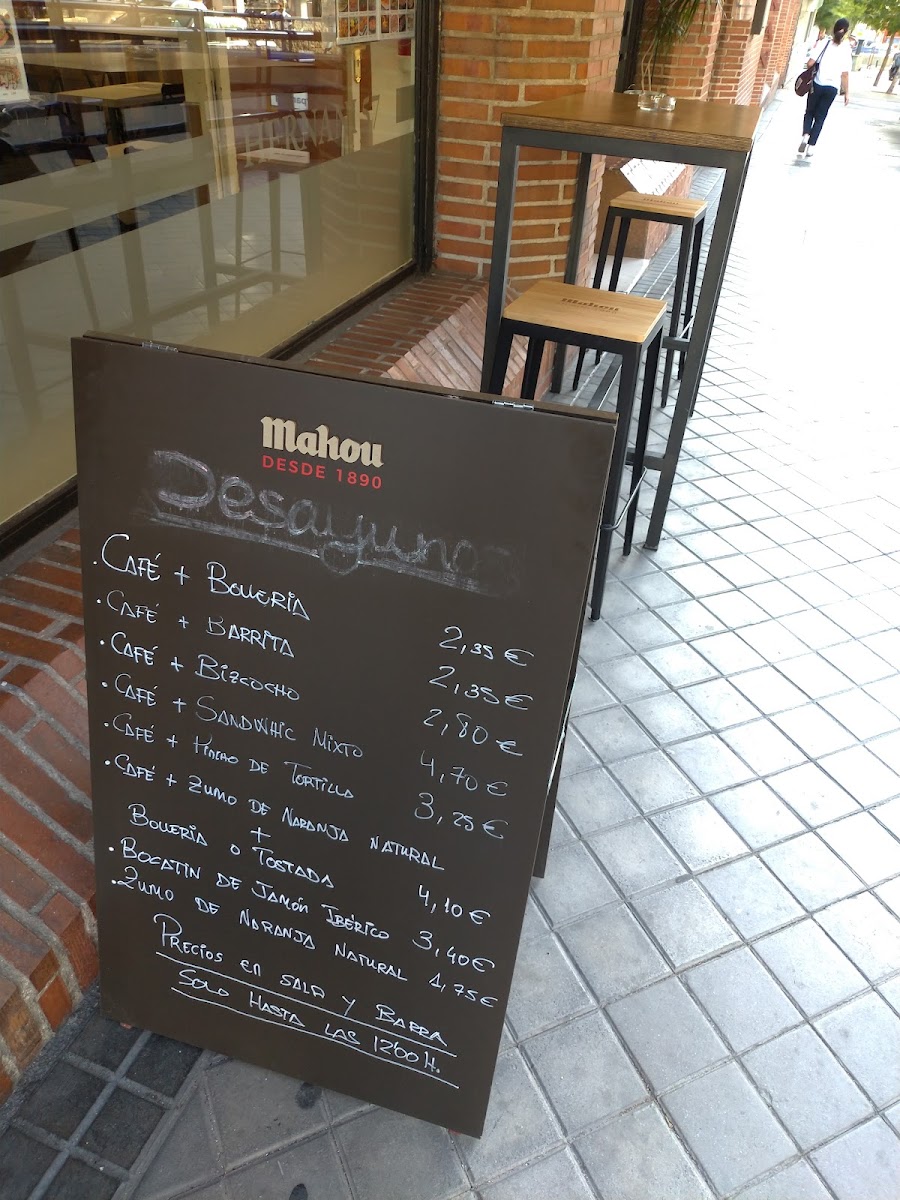 HERNAN
Mahou
Mahou
Mahou
DESDE 1890
Desayunos
· CAFÉ + BOLLERIA 2,35 €
· CAFÉ + BARRITA 2,35 €
· CAFÉ + BIZCOCHO 2,80 €
· CAFÉ + SANDWHIC MIXTO 4,70 €
· CAFÉ + PINCHO DE TORTILLA 3,25 €
· CAFÉ + ZUMO DE NARANJA NATURAL
+
BOLLERIA O TOSTADA 4,10 €
· BOCATIN DE JAMÓN IBÉRICO 3,40 €
· ZUMO DE NARANJA NATURAL 1,75 €
PRECIOS EN SALA Y BARRA
SOLO HASTA LAS 12'00 H.